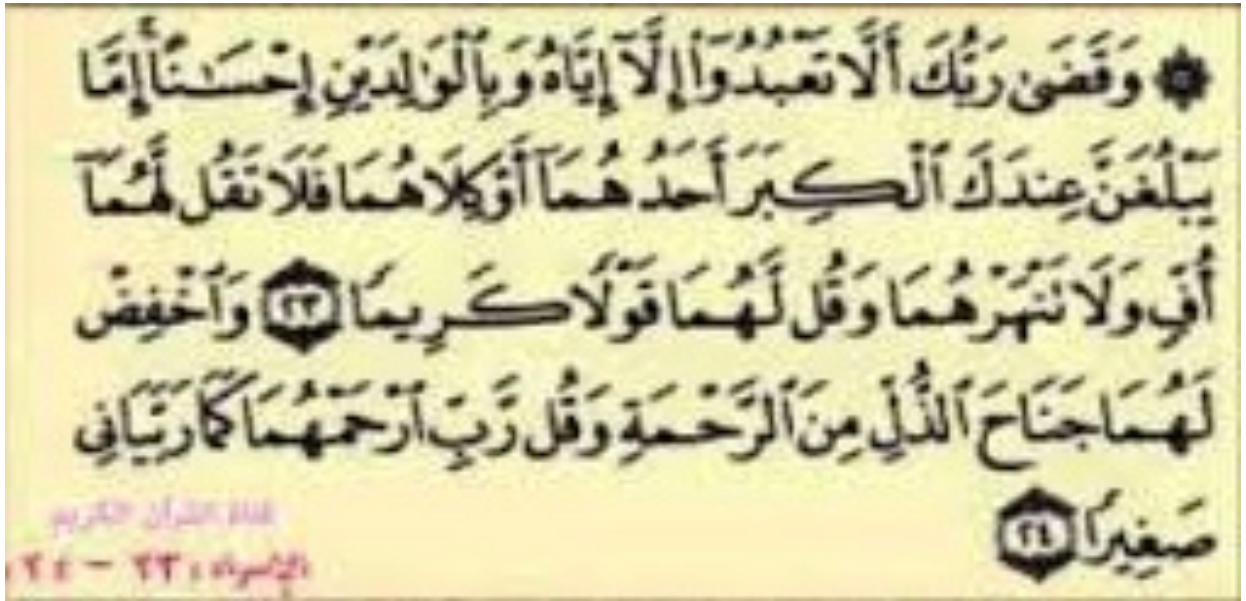 ۞ وَقَضَىٰ رَبُّكَ أَلَّا تَعْبُدُوٓا۟ إِلَّآ إِيَّاهُ وَبِٱلْوَٰلِدَيْنِ إِحْسَـٰنًا ۚ إِمَّا
يَبْلُغَنَّ عِندَكَ ٱلْكِبَرَ أَحَدُهُمَآ أَوْ كِلَاهُمَا فَلَا تَقُل لَّهُمَآ
أُفٍّ وَلَا تَنْهَرْهُمَا وَقُل لَّهُمَا قَوْلًا كَرِيمًا ٢٣ وَٱخْفِضْ
لَهُمَا جَنَاحَ ٱلذُّلِّ مِنَ ٱلرَّحْمَةِ وَقُل رَّبِّ ٱرْحَمْهُمَا كَمَا رَبَّيَانِى
صَغِيرًا ٢٤
قناة القرآن الكريم
الإسراء: ٢٣ - ٢٤